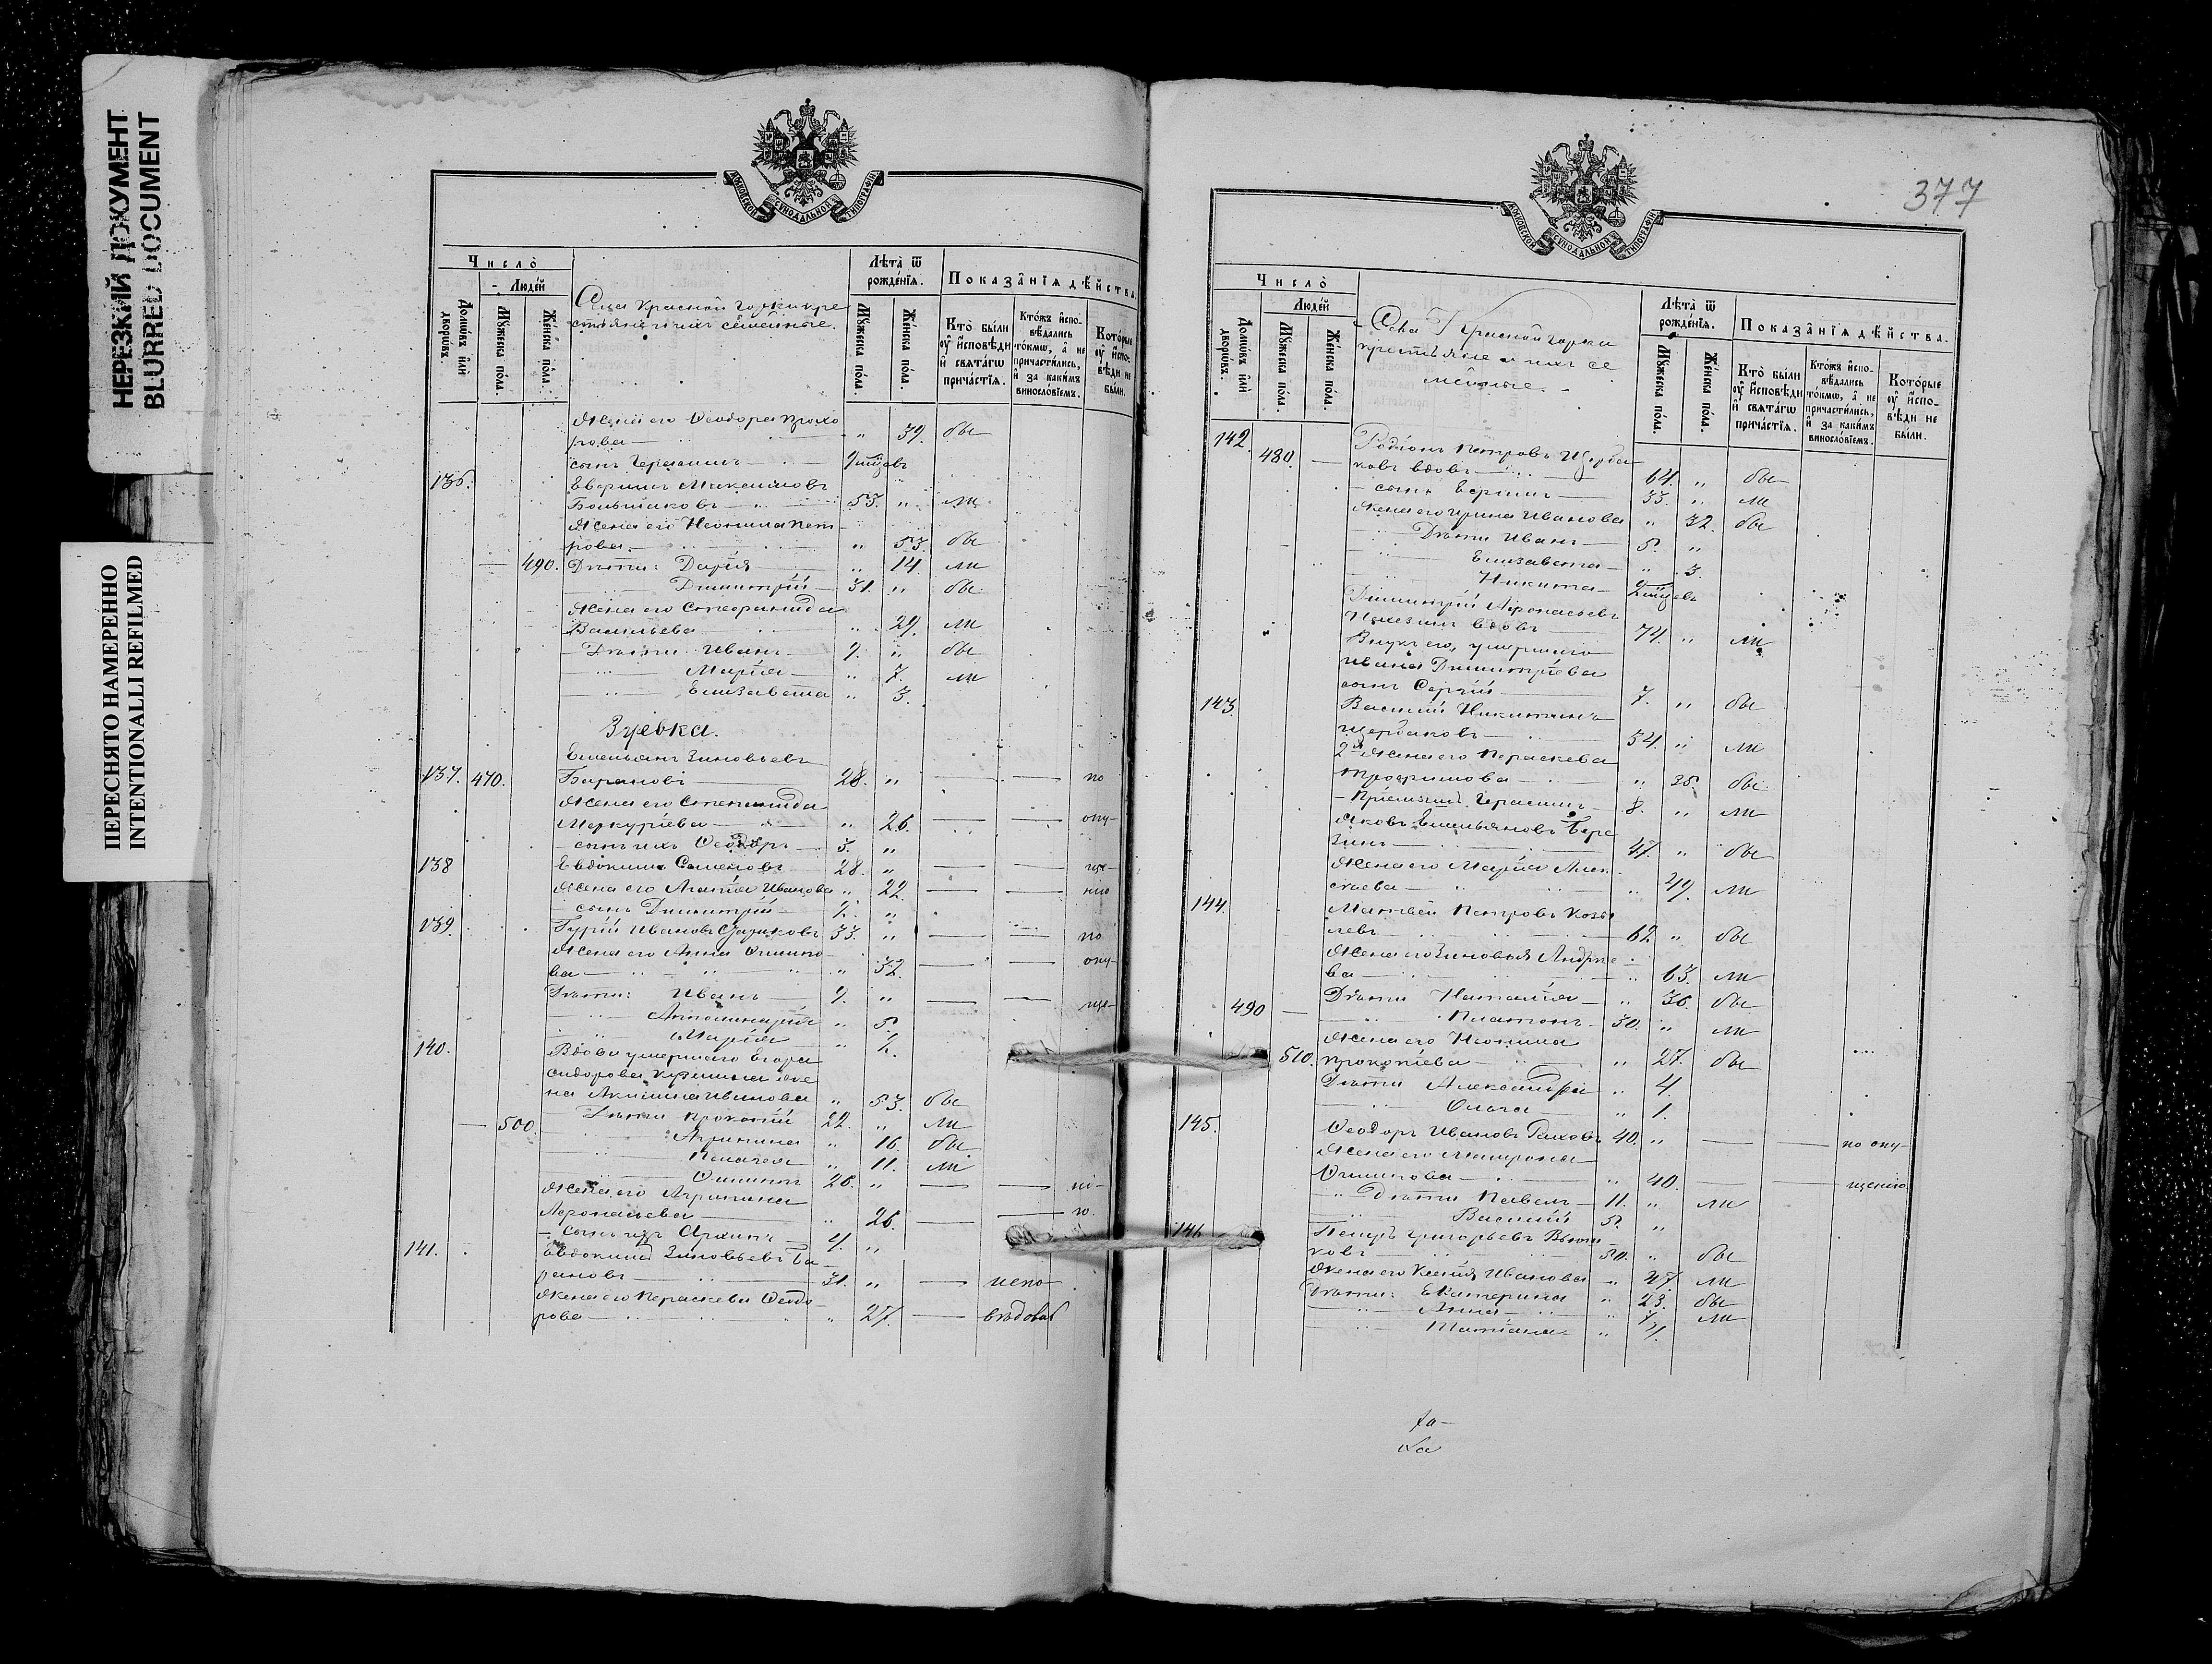 НЕРЕЗКИЙ ДОКУМЕНТ
BLURRED DOCUMENT
ПЕРЕСНЯТО НАМЕРЕННО
INTENTIONALLI REFILMED
МОСКОВСКОЙ СѴНОДАЛЬНОЙ ТИПОГРАФІИ
Число̀
Людей
Домѡвъ и҆лѝ дворѡвъ.
Мꙋжеска по́ла.
Же́нска по́ла.
Красной Горки кре
стьяне и ихъ семейные.
Лѣта̀ ѿ рожде́нїѧ.
Мꙋжеска по́ла.
Же́нска по́ла.
Показа̑нїѧ дѣ́йства.
Кто̀ бы́ли ᲂу҆ и҆сповѣди и҆ свѧта́гѡ прича́стїѧ.
Кто́жъ и҆спо-вѣдались то́кмѡ, а҆ не причасти́лись, и҆ за каки́мъ винословіемъ.
Кото́рые ᲂу҆ и҆спо-вѣди не бы́ли.
Жена его Ѳеодора Прохо
рова „ 39. бы
сынъ Герасимъ
136.
Максимовъ
Большаковъ 53. „ ли
Жена его Неонила Пет
рова „ 53. бы
490. Дѣти: Дарія „ 14. ли
Димитрій 31. „ бы
Жена его Стефанида
Васильева „ 29. ли
Дѣти Иванъ 9. „ бы
Марія „ 7. ли
Елизавета „ 3.
Зуевка.
Емельянъ Зиновьевъ
137. 470. Барановъ 28. „ по
Жена его Степанида
Меркуріева „ 26. опу-
сынъ ихъ Ѳеодоръ 3. „
138 Евдокимъ Семеновъ 28. „ ще-
Жена его Агапія Иванова „ 22. нію
сынъ Димитрій 2. „
139. Гурій Ивановъ 33. „ по
Жена его Анна
ва „ 32. опу-
Дѣти: Иванъ 9. „ ще-
„ 5.
Марія „ 2.
140. Вдова умершаго Егора
Сидорова же
на Акилина Иванова „ 53. бы
500. Дѣти Прокопій 22. „ ли
Агрипина „ 16. бы
Пелагея „ 11. ли
26. „ ні-
Жена его Агрипина
Афонасьева „ 26. ю.
сынъ ихъ Архипъ 4. „
141. Евдокимъ Зиновьевъ Ба-
рановъ 31. „ испо
Жена его Параскева Ѳеодо-
рова „ 27. вѣдовал
377
МОСКОВСКОЙ СѴНОДАЛЬНОЙ ТИПОГРАФІИ
Число̀
Людей
Домѡвъ и҆лѝ дворѡвъ.
Мꙋжеска по́ла.
Же́нска по́ла.
Села Красной Горки
крестьяне и ихъ се
мейные.
Лѣта̀ ѿ рожде́нїѧ.
Мꙋжеска по́ла.
Же́нска по́ла.
Показа̑нїѧ дѣ́йства.
Кто̀ бы́ли ᲂу҆ и҆сповѣди и҆ свѧта́гѡ прича́стїѧ.
Кто́жъ и҆спо-вѣдались то́кмѡ, а҆ не причасти́лись, и҆ за каки́мъ винословіемъ.
Кото́рые ᲂу҆ и҆спо-вѣди не бы́ли.
142. 480. Родіонъ Петровъ Щерба
ковъ вдовъ 64. „ бы
сынъ 33. „ ли
Жена его Ирина Иванова „ 32. бы
Дѣти Иванъ 5. „
Елизавета „ 3.
Никита
Димитрій Афонасьевъ
вдовъ 74. „ ли
Внукъ его, умершаго
Ивана Димитріева
сынъ Сергій 7. „ бы
143. Василій Никитинъ
Щербаковъ 54. „ ли
2я Жена его Параскева
Трофимова „ 35. бы
Пріемышъ Герасимъ 8. „ ли
Яковъ Емельяновъ Бере
зинъ 47. „ бы
Жена его Марія Алек
сѣева „ 49. ли
144. Матвей Петровъ Козы
ревъ 62 „ бы
Жена его Зиновья Андрее
ва „ 63. ли
490 Дѣти Наталія „ 36. бы
Платонъ 30. „ ли
Жена его Неонила
510. Прокопіева „ 27. бы
Дѣти Александра „ 4.
Ольга „ 1.
145. Ѳеодоръ Ивановъ 40. „ по опу-
Жена его Матрона
„ 40. щенію
Дѣти Павелъ 11. „ ли
Василій 5. „
146 Петръ Григорьевъ
ковъ 50. „ бы
Жена его Ксенія Иванова „ 47. ли
Дѣти: Екатерина „ 23. бы
Анна „ 7. ли
Татіана „ 4.